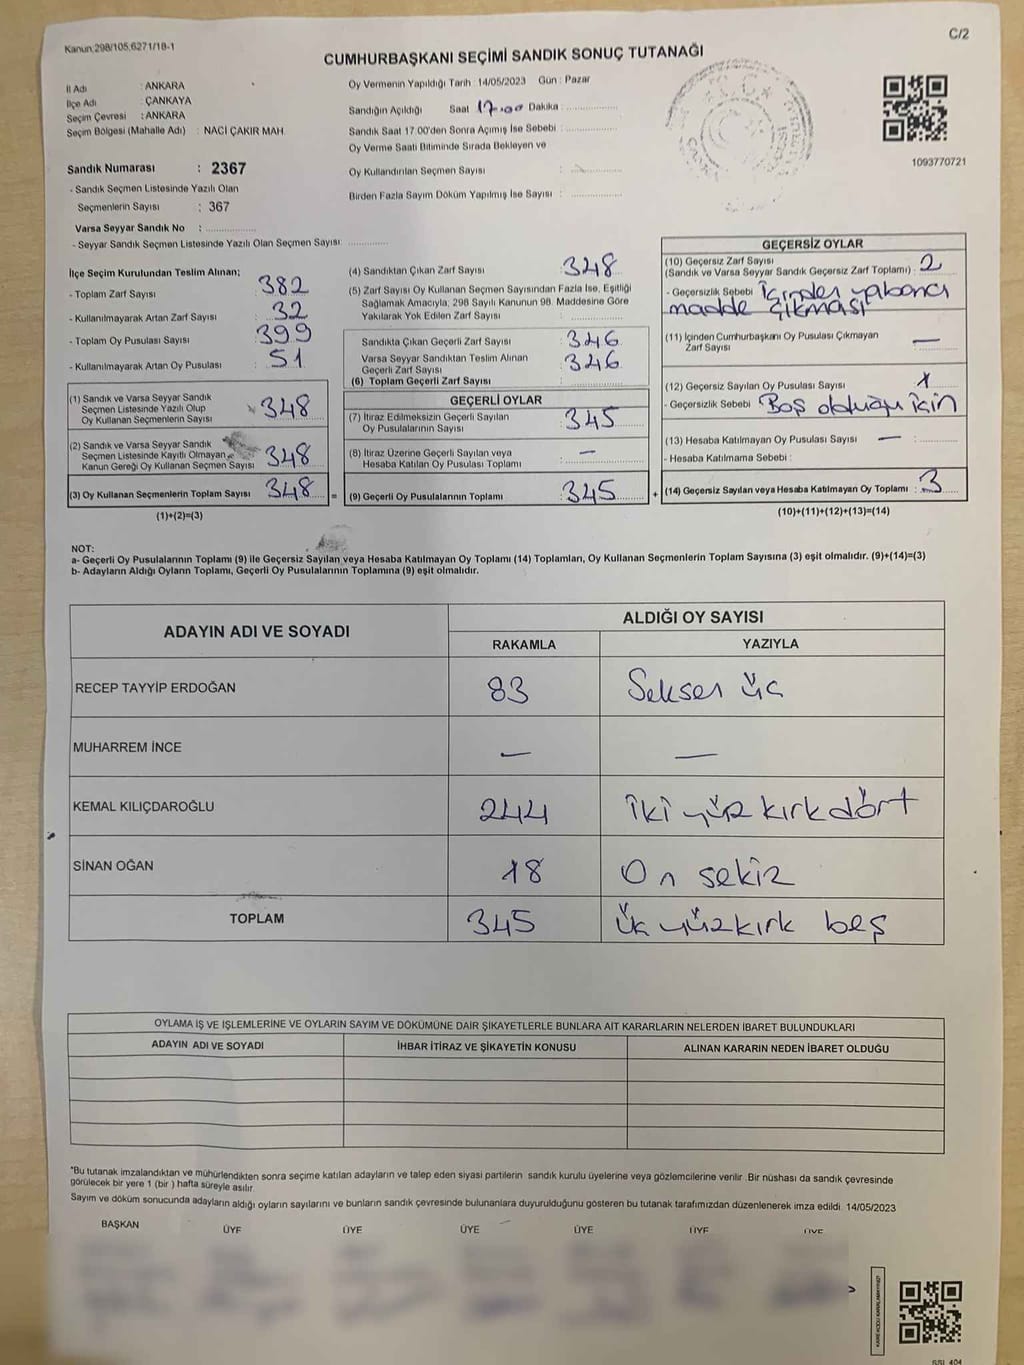 Kanun;298/105,6271/18-1
C/2
CUMHURBAŞKANI SEÇİMİ SANDIK SONUÇ TUTANAĞI
İl Adı : ANKARA
İlçe Adı : ÇANKAYA
Seçim Çevresi : ANKARA
Seçim Bölgesi (Mahalle Adı) : NACİ ÇAKIR MAH.
Oy Vermenin Yapıldığı Tarih : 14/05/2023 Gün : Pazar
Sandığın Açıldığı Saat 17.00 Dakika :
Sandık Saat 17.00'den Sonra Açımış İse Sebebi :
Oy Verme Saati Bitiminde Sırada Bekleyen ve
Oy Kullandırılan Seçmen Sayısı :
Birden Fazla Sayım Döküm Yapılmış İse Sayısı :
1093770721
Sandık Numarası : 2367
- Sandık Seçmen Listesinde Yazılı Olan
Seçmenlerin Sayısı : 367
Varsa Seyyar Sandık No :
- Seyyar Sandık Seçmen Listesinde Yazılı Olan Seçmen Sayısı:
İlçe Seçim Kurulundan Teslim Alınan;
- Toplam Zarf Sayısı : 382
- Kullanılmayarak Artan Zarf Sayısı : 32
- Toplam Oy Pusulası Sayısı : 399
- Kullanılmayarak Artan Oy Pusulası : 51
(1) Sandık ve Varsa Seyyar Sandık
Seçmen Listesinde Yazılı Olup
Oy Kullanan Seçmenlerin Sayısı : 348
(2) Sandık ve Varsa Seyyar Sandık
Seçmen Listesinde Kayıtlı Olmayan
Kanun Gereği Oy Kullanan Seçmen Sayısı : 348
(3) Oy Kullanan Seçmenlerin Toplam Sayısı : 348 =
(1)+(2)=(3)
(4) Sandıktan Çıkan Zarf Sayısı : 348
(5) Zarf Sayısı Oy Kullanan Seçmen Sayısından Fazla İse, Eşitliği
Sağlamak Amacıyla; 298 Sayılı Kanunun 98. Maddesine Göre
Yakılarak Yok Edilen Zarf Sayısı :
Sandıkta Çıkan Geçerli Zarf Sayısı : 346
Varsa Seyyar Sandıktan Teslim Alınan
Geçerli Zarf Sayısı : 346
(6) Toplam Geçerli Zarf Sayısı :
GEÇERLİ OYLAR
(7) İtiraz Edilmeksizin Geçerli Sayılan
Oy Pusulalarının Sayısı : 345
(8) İtiraz Üzerine Geçerli Sayılan veya
Hesaba Katılan Oy Pusulası Toplamı : —
(9) Geçerli Oy Pusulalarının Toplamı : 345 +
GEÇERSİZ OYLAR
(10) Geçersiz Zarf Sayısı
(Sandık ve Varsa Seyyar Sandık Geçersiz Zarf Toplamı) : 2
- Geçersizlik Sebebi : İçinden yabancı
madde çıkması
(11) İçinden Cumhurbaşkanı Oy Pusulası Çıkmayan
Zarf Sayısı : —
(12) Geçersiz Sayılan Oy Pusulası Sayısı : 1
- Geçersizlik Sebebi : Boş olduğu için
(13) Hesaba Katılmayan Oy Pusulası Sayısı : —
- Hesaba Katılmama Sebebi :
(14) Geçersiz Sayılan veya Hesaba Katılmayan Oy Toplamı : 3
(10)+(11)+(12)+(13)=(14)
NOT:
a- Geçerli Oy Pusulalarının Toplamı (9) ile Geçersiz Sayılan veya Hesaba Katılmayan Oy Toplamı (14) Toplamları, Oy Kullanan Seçmenlerin Toplam Sayısına (3) eşit olmalıdır. (9)+(14)=(3)
b- Adayların Aldığı Oyların Toplamı, Geçerli Oy Pusulalarının Toplamına (9) eşit olmalıdır.
ADAYIN ADI VE SOYADI
ALDIĞI OY SAYISI
RAKAMLA YAZIYLA
RECEP TAYYİP ERDOĞAN 83 Seksen üç
MUHARREM İNCE — —
KEMAL KILIÇDAROĞLU 244 İki yüz kırk dört
SİNAN OĞAN 18 On sekiz
TOPLAM 345 Üç yüz kırk beş
OYLAMA İŞ VE İŞLEMLERİNE VE OYLARIN SAYIM VE DÖKÜMÜNE DAİR ŞİKAYETLERLE BUNLARA AİT KARARLARIN NELERDEN İBARET BULUNDUKLARI
ADAYIN ADI VE SOYADI İHBAR İTİRAZ VE ŞİKAYETİN KONUSU ALINAN KARARIN NEDEN İBARET OLDUĞU
"Bu tutanak imzalandıktan ve mühürlendikten sonra seçime katılan adayların ve talep eden siyasi partilerin sandık kurulu üyelerine veya gözlemcilerine verilir. Bir nüshası da sandık çevresinde
görülecek bir yere 1 (bir ) hafta süreyle asılır.
Sayım ve döküm sonucunda adayların aldığı oyların sayılarını ve bunların sandık çevresinde bulunanlara duyurulduğunu gösteren bu tutanak tarafımızdan düzenlenerek imza edildi. 14/05/2023
BAŞKAN ÜYE ÜYE ÜYE ÜYE ÜYE ÜYE